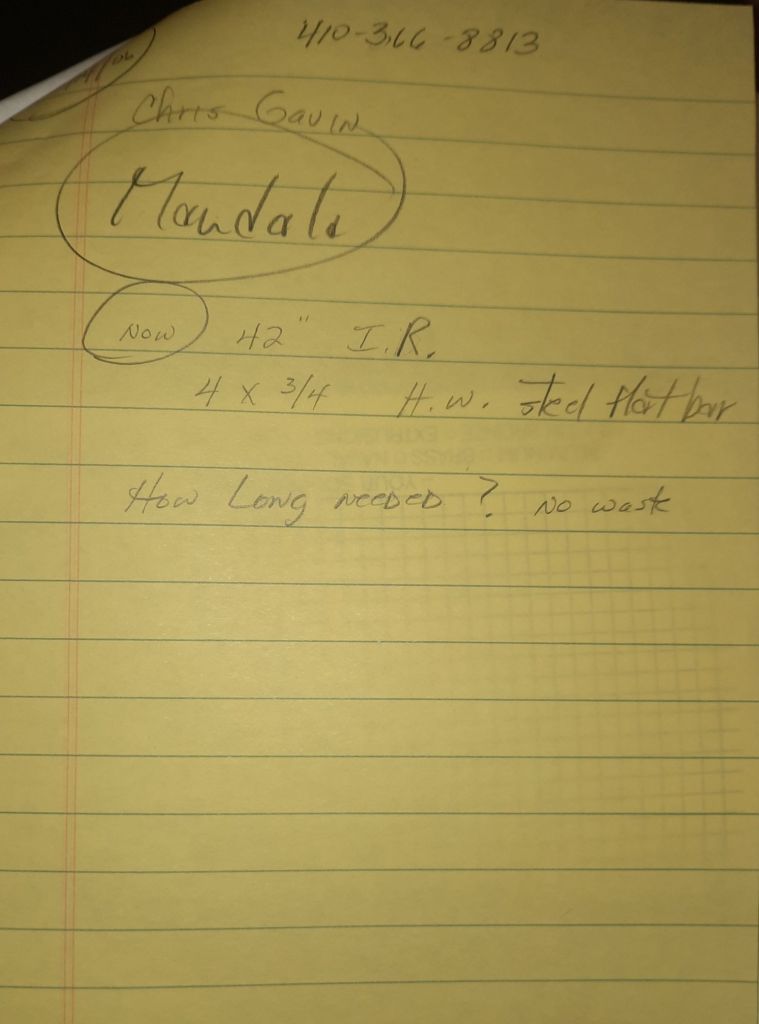 410-366-8813
Chris Gavin
Mandala
Now 42" I.R.
4 x 3/4 H.W. steel flat bar
How Long needed? No waste